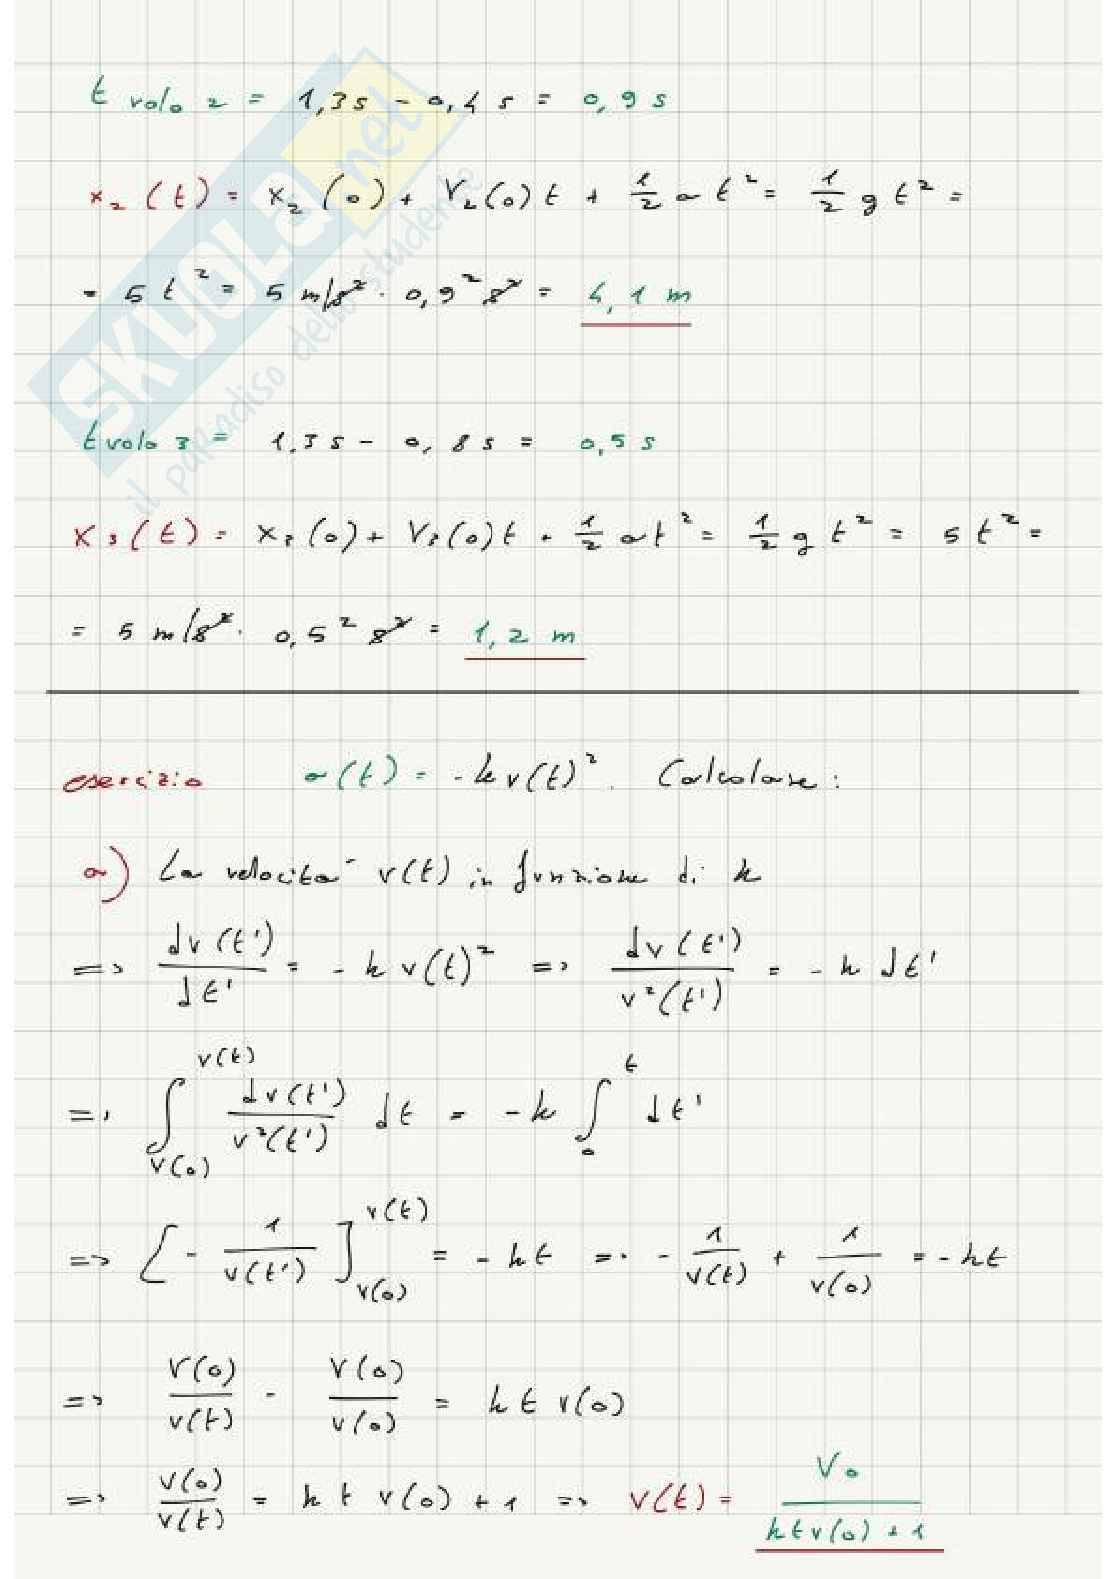 t volo 2 = 1,3 s - 0,4 s = 0,9 s
x₂(t) = x₂(0) + V₂(0)t + 1/2 a t² = 1/2 g t² =
= 5 t² = 5 m/s² · 0,9² s² = 4,1 m
t volo 3 = 1,3 s - 0,8 s = 0,5 s
x₃(t) = x₃(0) + V₃(0)t + 1/2 a t² = 1/2 g t² = 5 t² =
= 5 m/s² · 0,5² s² = 1,2 m
esercizio a(t) = -k v(t)². Calcolare:
a) La velocità v(t) in funzione di k
=> dv(t')/dt' = -k v(t)² => dv(t')/v²(t') = -k dt'
=> ∫_{v(0)}^{v(t)} dv(t')/v²(t') dt = -k ∫_0^t dt'
=> [-1/v(t')]_{v(0)}^{v(t)} = -kt => -1/v(t) + 1/v(0) = -kt
=> v(0)/v(t) - v(0)/v(0) = k t v(0)
=> v(0)/v(t) = k t v(0) + 1 => v(t) = V₀/(k t v(0) + 1)
SKUOLA.net
il paradiso dello studente